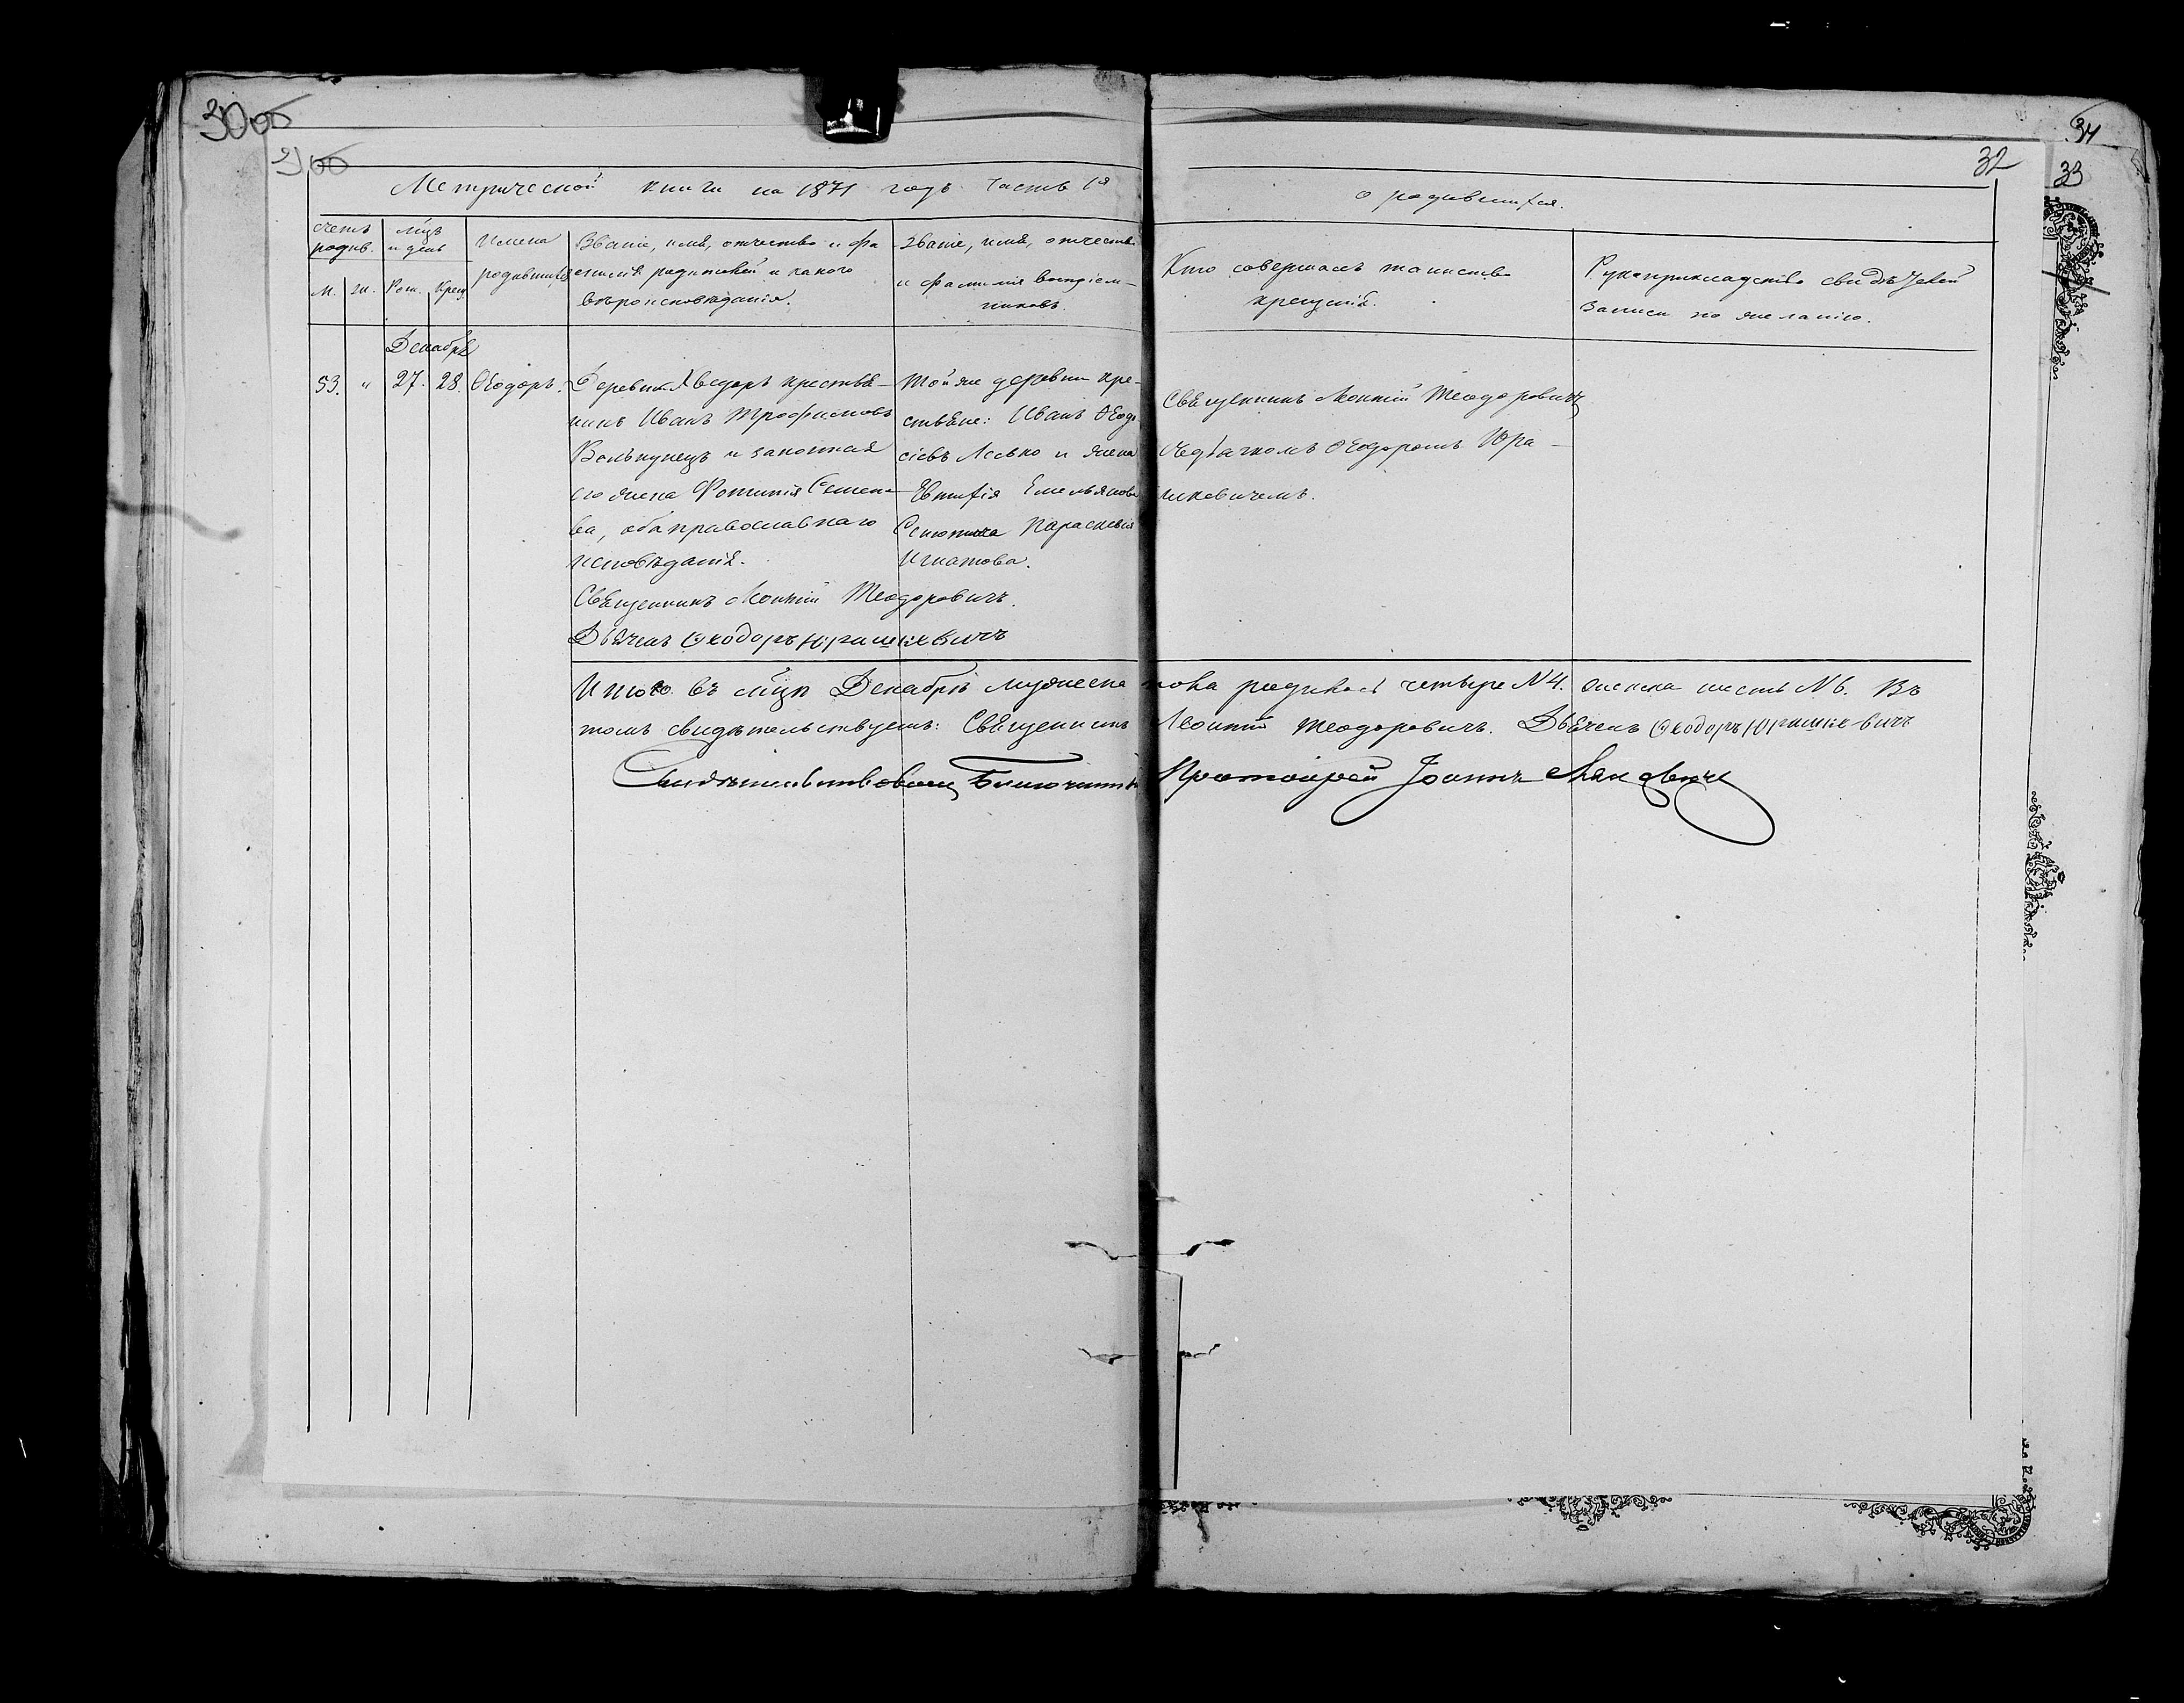 30об
32
33
Метрической книги на 1871 годъ часть 1я о родившихся.
Счетъ родив.
М. Ж.
Мцъ и день
Рож. Крещ.
Имена родившихся
Званіе, имя, отчество и фа
милія родителей и какого
вѣроисповѣданія.
Званіе, имя, отчество
и фамилія воспріем-
никовъ.
Кто совершалъ таинство
крещенія.
Рукоприкладство свидѣтелей
записи по желанію.
Декабрь
53. " 27. 28. Ѳеодоръ.
Деревни Яведоръ крестья-
нинъ Иванъ Трофимовъ
Волькунецъ и законная
его жена Фотинія Семено-
ва, оба православнаго
исповѣданія.
Священникъ Леонтій Теодоровичъ.
Дьячекъ Ѳеодоръ Юрашкевичъ
Той же деревни кре-
стьяне: Иванъ Ѳеодо
сіевъ Лесько и жена
Евтихія Емельянова
Сенютича Параскевія
Игнатова.
Священникъ Леонтій Теодоровичъ
съ дьячкомъ Ѳеодоромъ Юра-
шкевичемъ.
Итого въ мцѣ Декабрѣ мужеска пола родилось четыре №4. женска шесть №6. Въ
томъ свидѣтельствуемъ: Священникъ Леонтій Теодоровичъ. Дьячекъ Ѳеодоръ Юрашкевичъ
Свидѣтельствовалъ Благочинный Протоіерей Іоаннъ